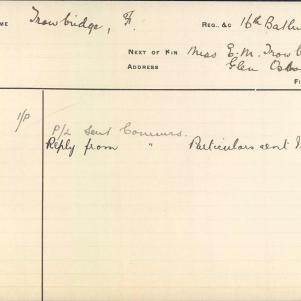 ME Trowbridge, F. REG. &C 16th Battn
NEXT OF KIN Miss E. M. Trowb
ADDRESS Glen Osbo
F
1/P
P/L sent Commrs.
Reply from " Particulars sent